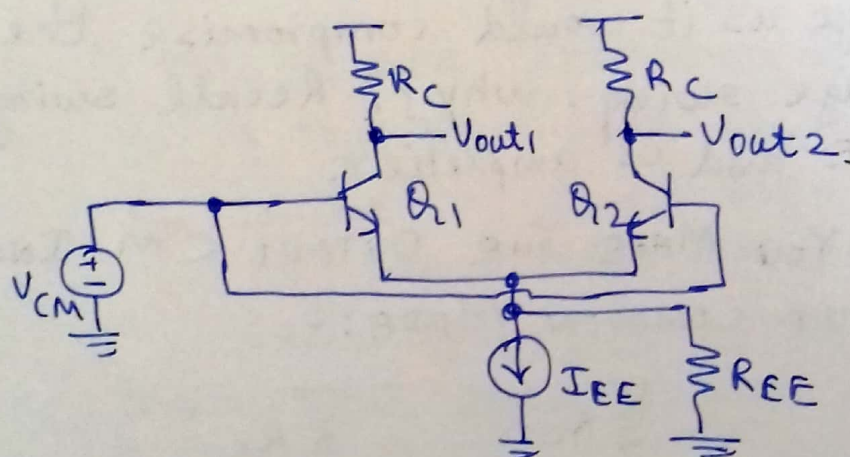 RC
RC
Vout1
Vout2
Q1
Q2
VCM
+
-
IEE
REE